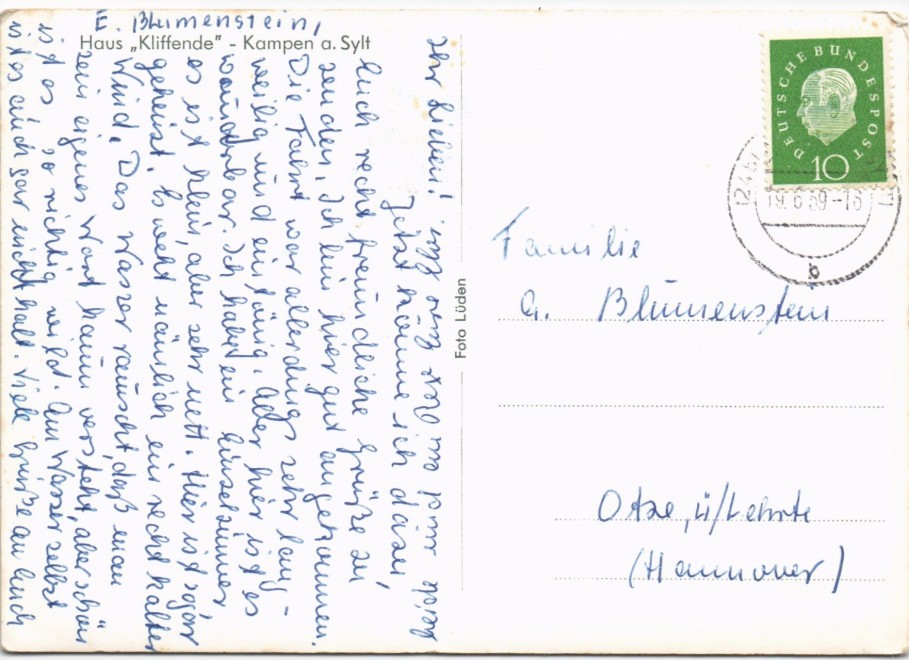 Haus „Kliffende" - Kampen a. Sylt
Ihr Lieben!
Jetzt komme ich dazu,
Euch recht freundliche Grüße zu
senden. Ich bin hier gut angekommen.
Die Fahrt war allerdings sehr lang-
weilig und eintönig. Aber hier ist es
wunderbar. Ich habe ein Einzelzimmer
es ist klein, aber sehr nett. Hier ist sogar
geheizt. Es weht nämlich ein recht kalter
Wind. Das Wasser rauscht, daß man
sein eigenes Wort kaum versteht, aber schön
ist es so richtig wild. Am Wasser selbst
ist es auch gar nicht kalt. Viele Grüße an Euch
E. Blumenstein,
Foto Lüden
DEUTSCHE BUNDESPOST
10
b
Familie
A. Blumenstein
Otze, ü/Lehrte
(Hannover)